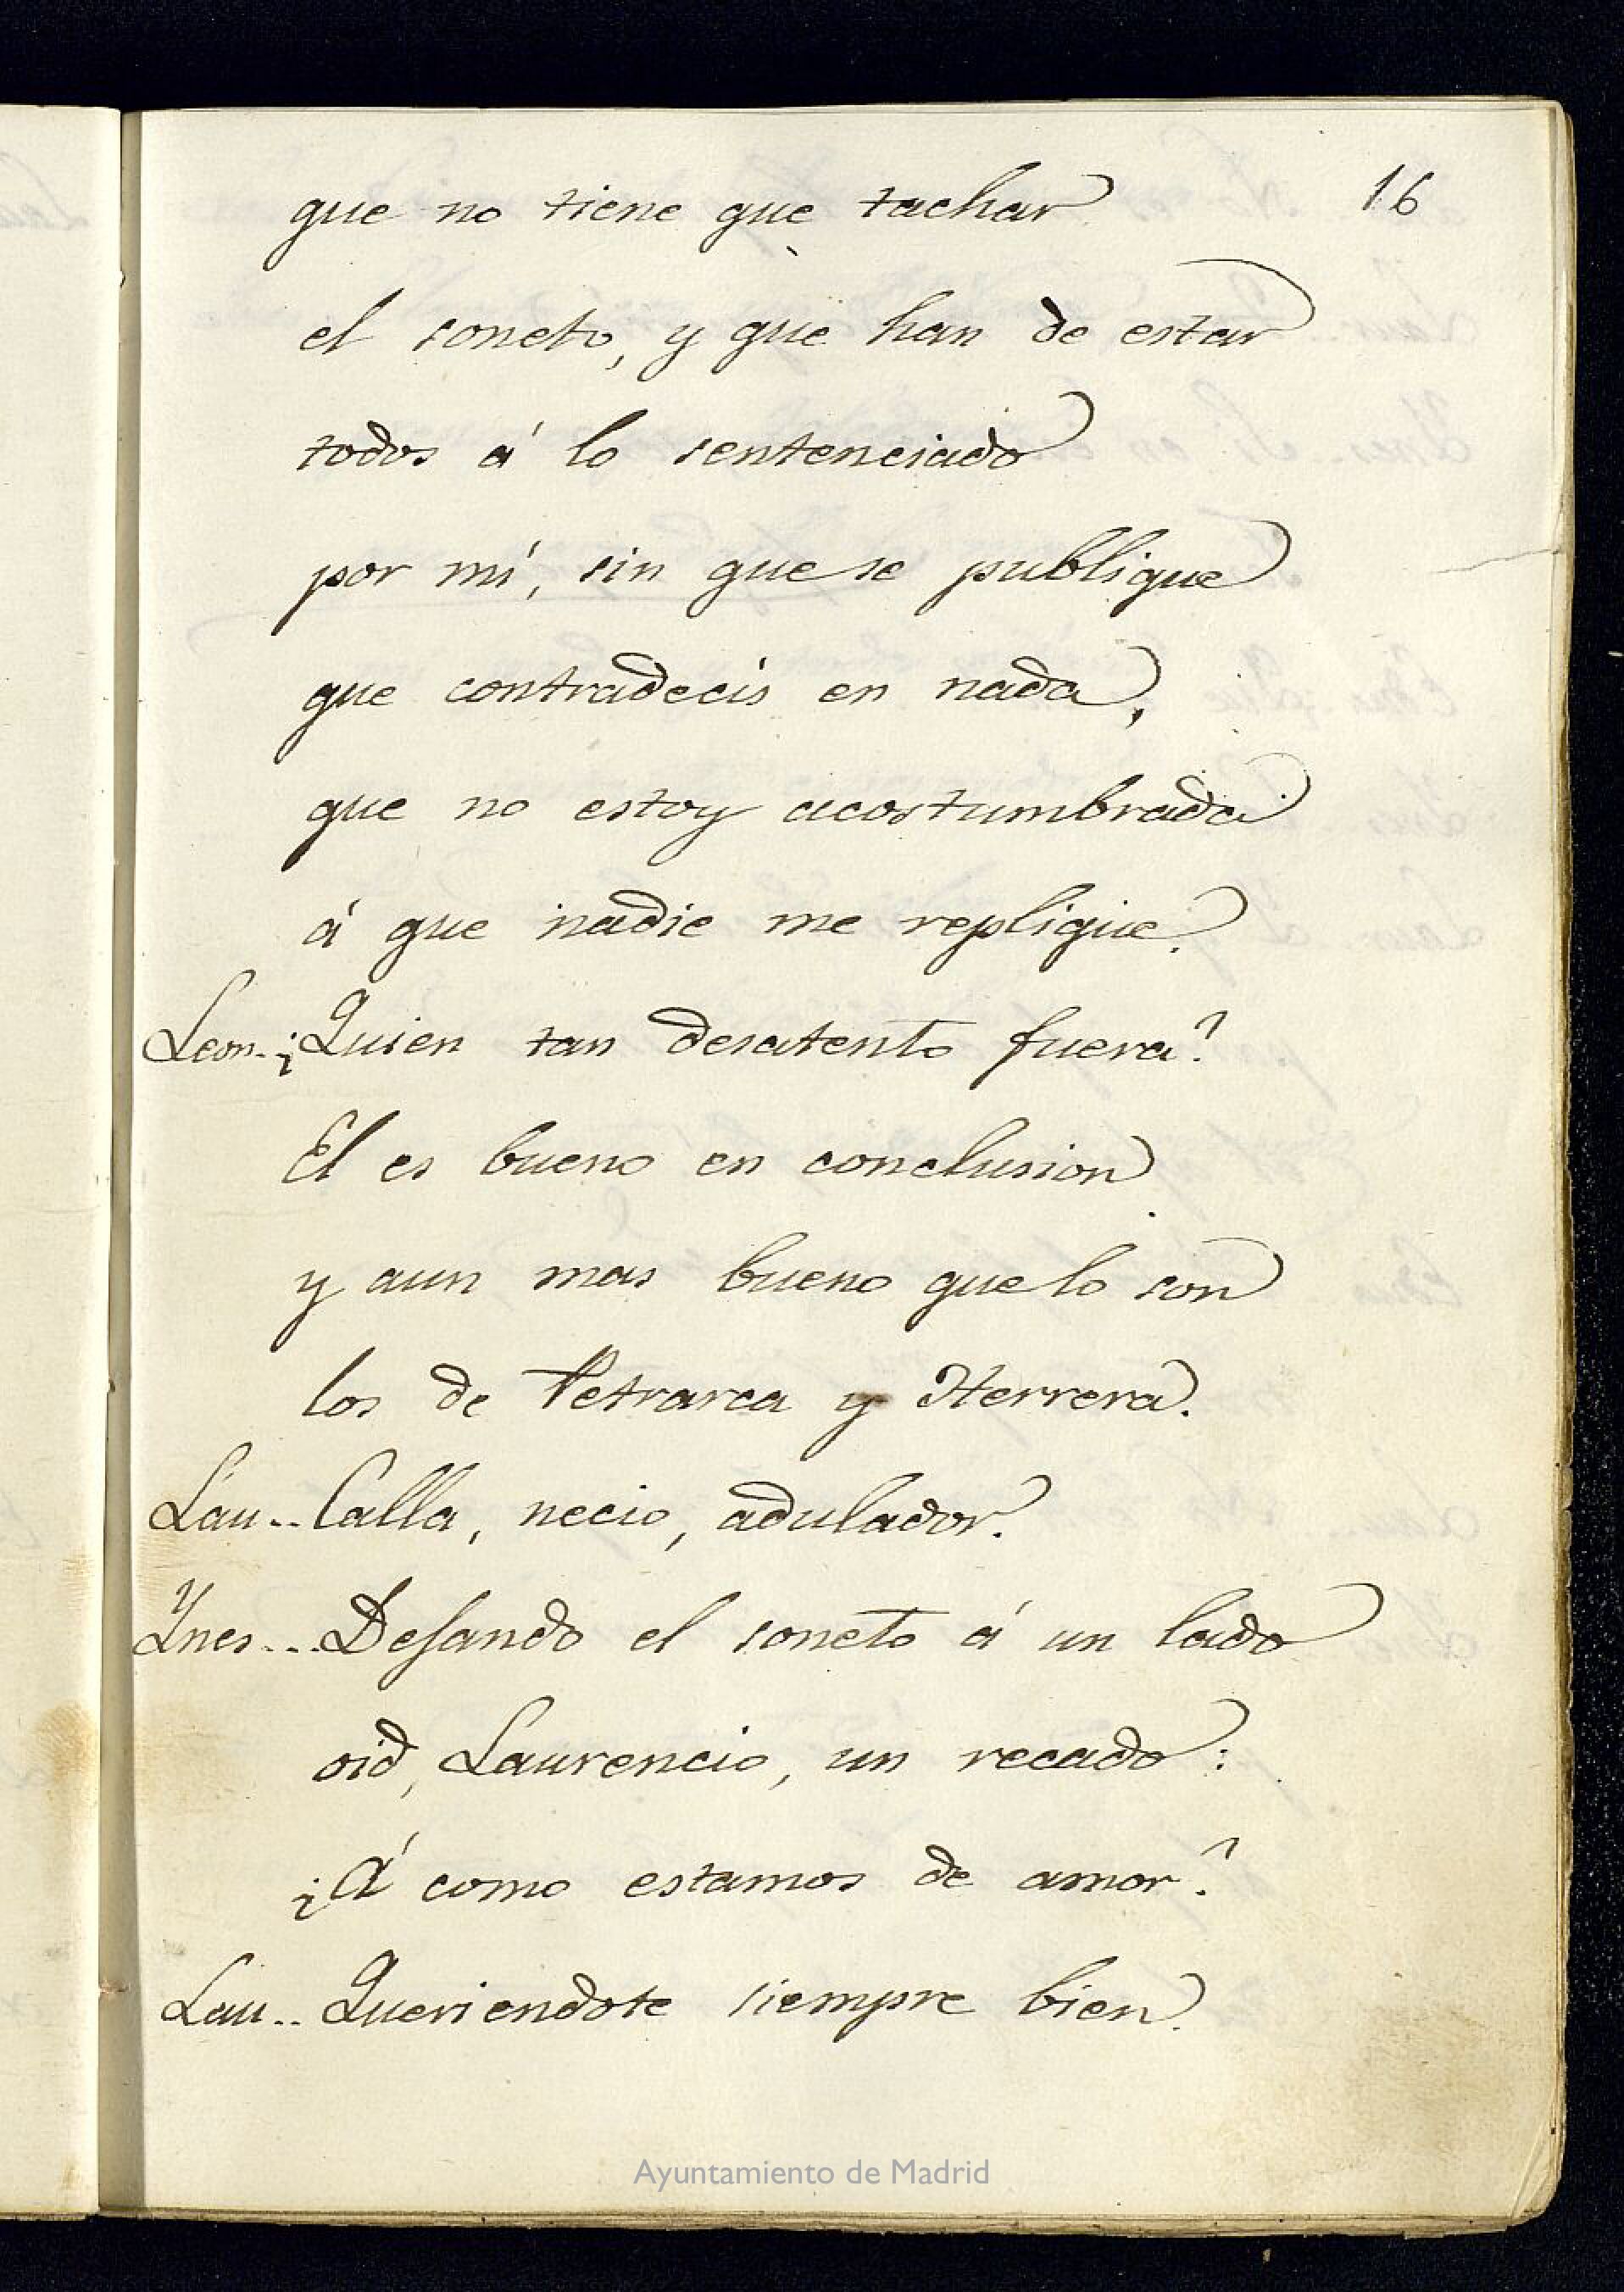 16
que no tiene que tachar
el soneto, y que han de estar
todos á lo sentenciado
por mí, sin que se publique
que contradecis en nada,
que no estoy acostumbrada
á que nadie me replique.
Leon.. ¿Quien tan desatento fuera?
El es bueno en conclusion
y aun mas bueno que lo son
los de Petrarca y Herrera.
Lau.. Calla, necio, adulador.
Ynes... Dejando el soneto á un lado
oid, Laurencio, un recado:
¿Á como estamos de amor?
Lau.. Queriendote siempre bien.
Ayuntamiento de Madrid